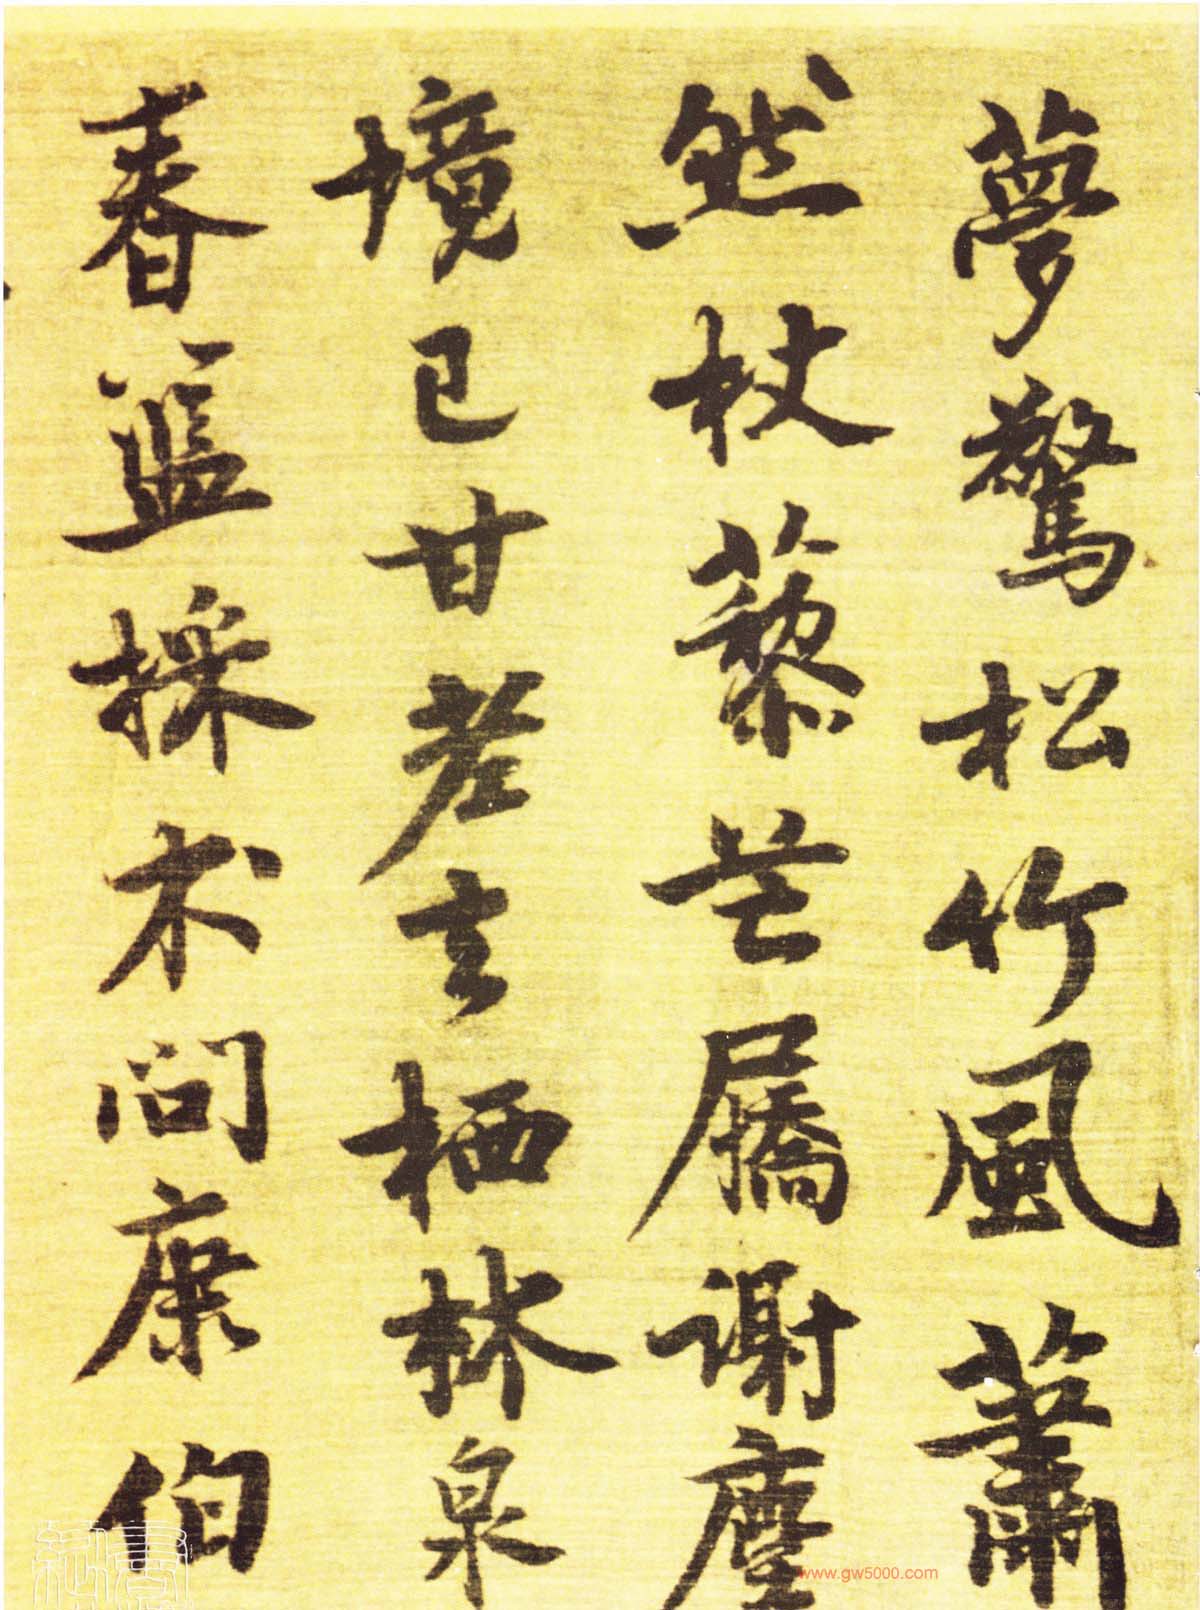 夢驚松竹風蕭
然杖藜芒屩謝塵
境已甘老去栖林泉
春籃採朮問康伯
www.gw5000.com